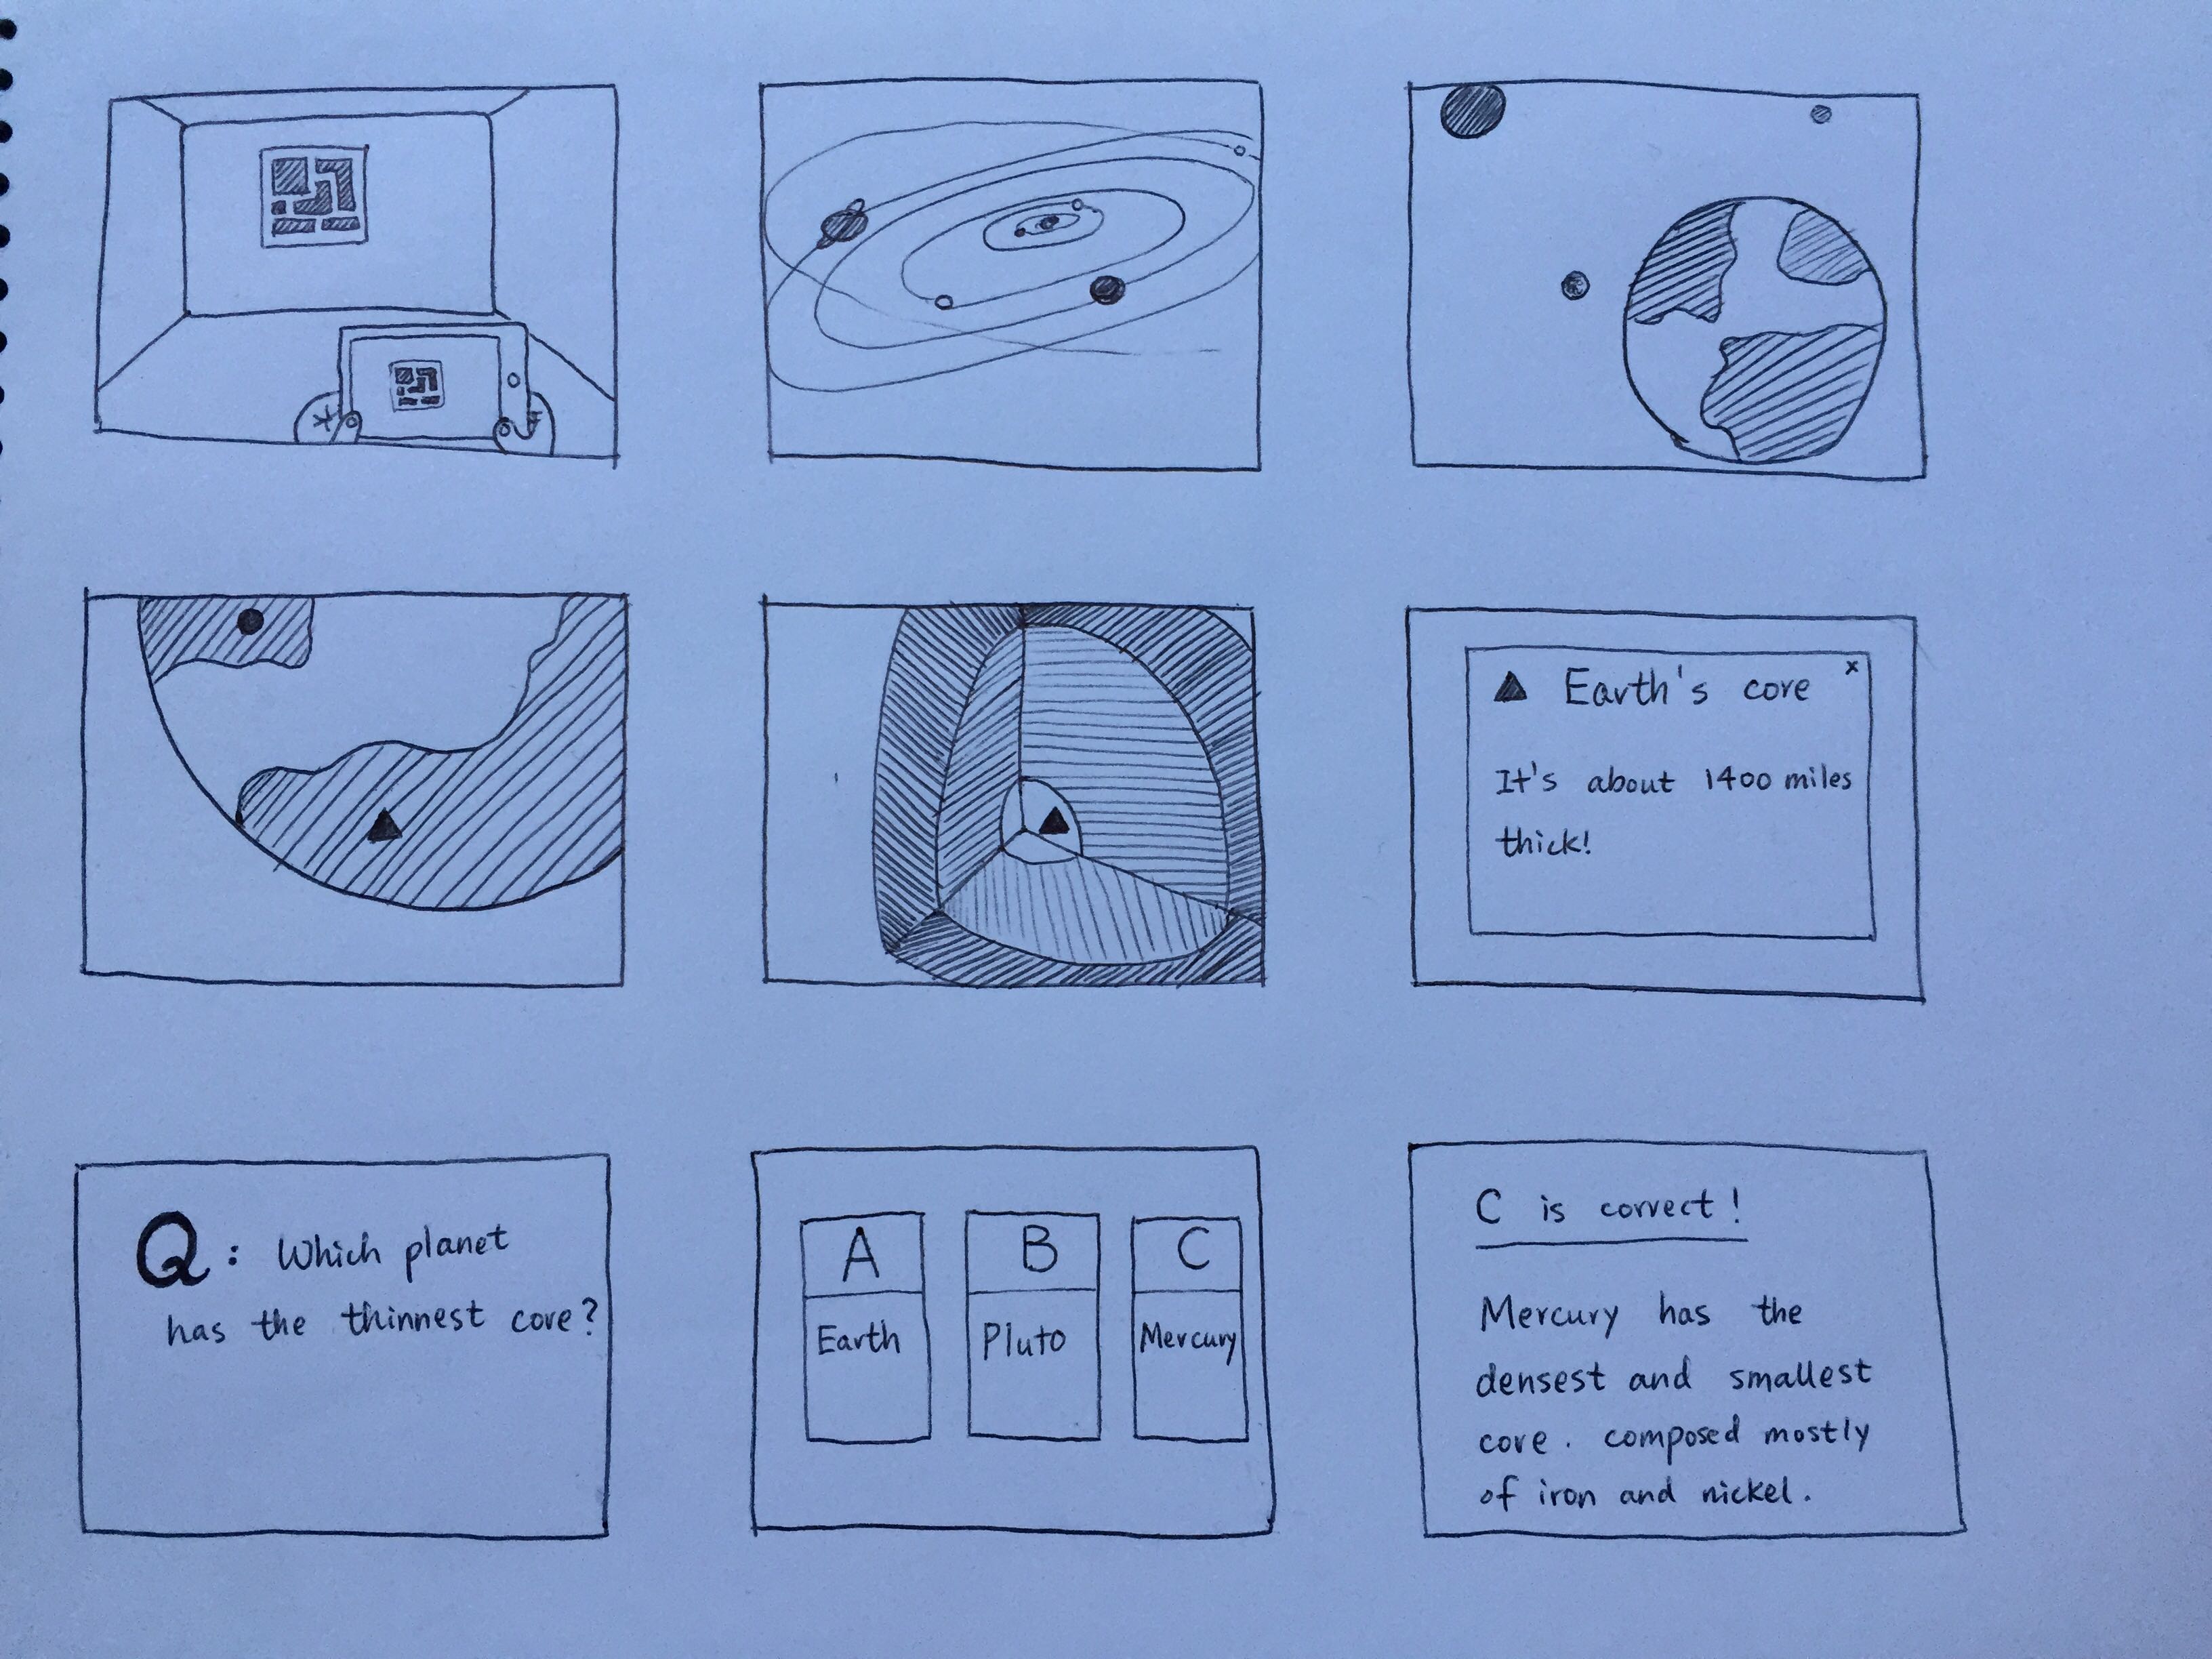 ▲ Earth's core x
It's about 1400 miles
thick!
Q: Which planet
has the thinnest core?
A B C
Earth Pluto Mercury
C is correct!
Mercury has the
densest and smallest
core. composed mostly
of iron and nickel.